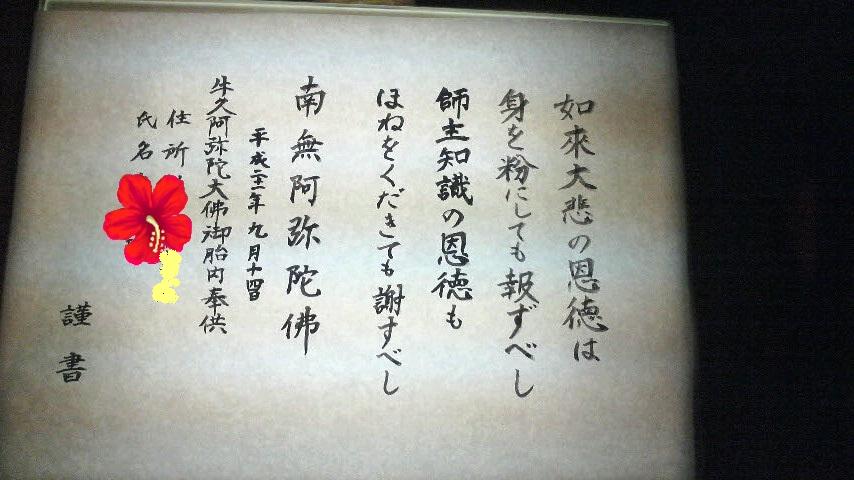 如來大悲の恩徳は
身を粉にしても報ずべし
師主知識の恩徳も
ほねをくだきても謝すべし
南無阿弥陀佛
平成二十一年九月十四日
牛久阿弥陀大佛御胎内奉供
住所
氏名
謹書